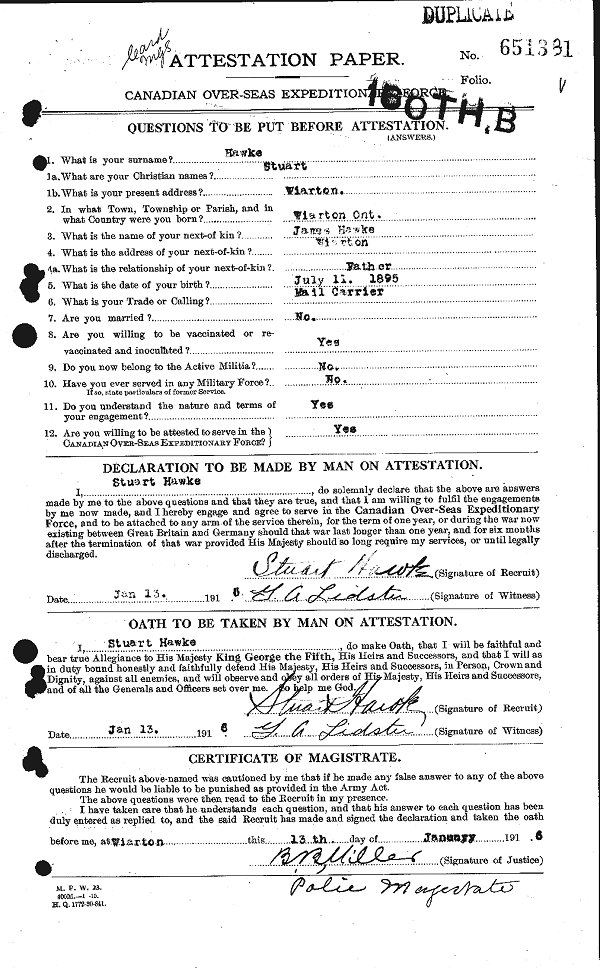 DUPLICATE
ATTESTATION PAPER.
No. 651381
Folio.
CANADIAN OVER-SEAS EXPEDITIONARY FORCE
160TH,B
QUESTIONS TO BE PUT BEFORE ATTESTATION.
(ANSWERS.)
1. What is your surname? Hawke
1a. What are your Christian names? Stuart
1b. What is your present address? Wiarton.
2. In what Town, Township or Parish, and in
what Country were you born? Wiarton Ont.
3. What is the name of your next-of kin? James Hawke
4. What is the address of your next-of-kin? Wiarton
4a. What is the relationship of your next-of-kin? Father
5. What is the date of your birth? July 11. 1895
6. What is your Trade or Calling? Mail Carrier
7. Are you married? No.
8. Are you willing to be vaccinated or re-
vaccinated and inoculated? Yes
9. Do you now belong to the Active Militia? No.
10. Have you ever served in any Military Force? No.
If so, state particulars of former Service.
11. Do you understand the nature and terms of
your engagement? Yes
12. Are you willing to be attested to serve in the
CANADIAN OVER-SEAS EXPEDITIONARY FORCE? Yes
DECLARATION TO BE MADE BY MAN ON ATTESTATION.
I, Stuart Hawke, do solemnly declare that the above are answers
made by me to the above questions and that they are true, and that I am willing to fulfil the engagements
by me now made, and I hereby engage and agree to serve in the Canadian Over-Seas Expeditionary
Force, and to be attached to any arm of the service therein, for the term of one year, or during the war now
existing between Great Britain and Germany should that war last longer than one year, and for six months
after the termination of that war provided His Majesty should so long require my services, or until legally
discharged.
Stuart Hawke (Signature of Recruit)
Date Jan 13. 1916 G A Lidster (Signature of Witness)
OATH TO BE TAKEN BY MAN ON ATTESTATION.
I, Stuart Hawke, do make Oath, that I will be faithful and
bear true Allegiance to His Majesty King George the Fifth, His Heirs and Successors, and that I will as
in duty bound honestly and faithfully defend His Majesty, His Heirs and Successors, in Person, Crown and
Dignity, against all enemies, and will observe and obey all orders of His Majesty, His Heirs and Successors,
and of all the Generals and Officers set over me. So help me God.
Stuart Hawke (Signature of Recruit)
Date Jan 13. 1916 G A Lidster (Signature of Witness)
CERTIFICATE OF MAGISTRATE.
The Recruit above-named was cautioned by me that if he made any false answer to any of the above
questions he would be liable to be punished as provided in the Army Act.
The above questions were then read to the Recruit in my presence.
I have taken care that he understands each question, and that his answer to each question has been
duly entered as replied to, and the said Recruit has made and signed the declaration and taken the oath
before me, at Wiarton this 13 th. day of January 1916
B.B. Miller (Signature of Justice)
Police Magestrate
M. F. W. 23.
H. Q. 1772-39-841.